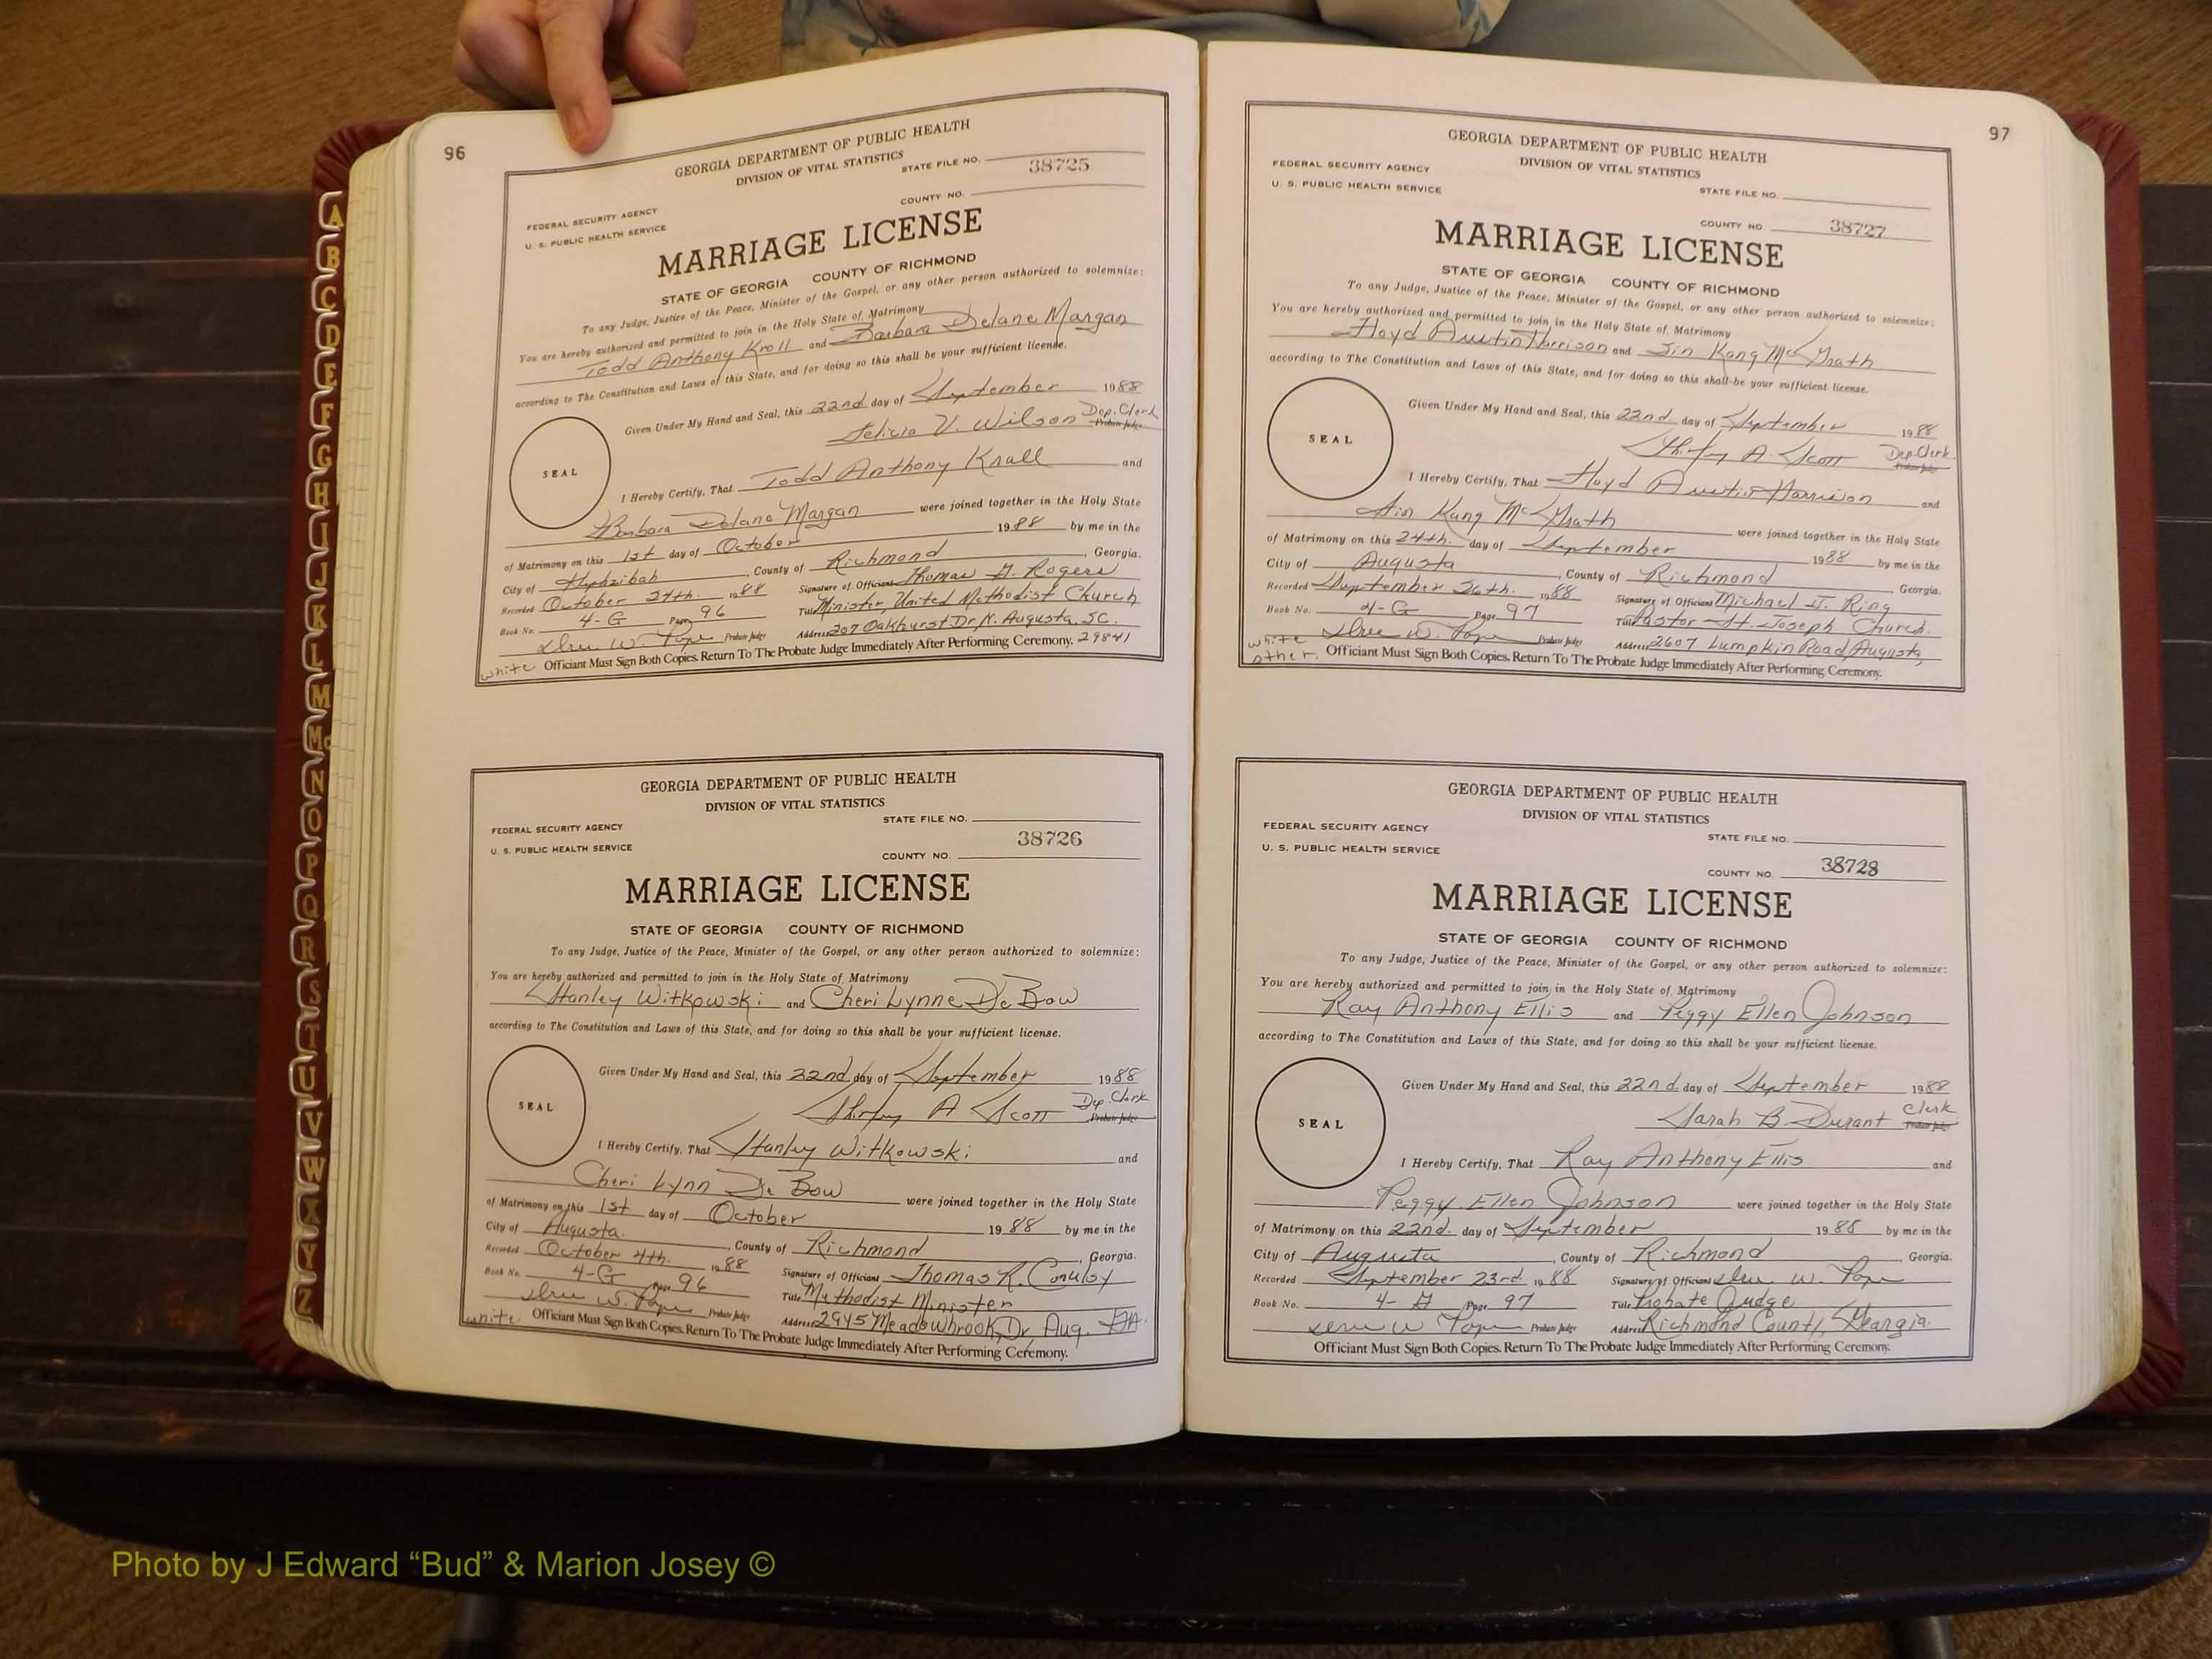 96
GEORGIA DEPARTMENT OF PUBLIC HEALTH
DIVISION OF VITAL STATISTICS
STATE FILE NO. 38725
COUNTY NO.
FEDERAL SECURITY AGENCY
U. S. PUBLIC HEALTH SERVICE
MARRIAGE LICENSE
STATE OF GEORGIA COUNTY OF RICHMOND
To any Judge, Justice of the Peace, Minister of the Gospel, or any other person authorized to solemnize:
You are hereby authorized and permitted to join in the Holy State of Matrimony
Todd Anthony Kroll and Barbara Delane Morgan
according to The Constitution and Laws of this State, and for doing so this shall be your sufficient license.
Given Under My Hand and Seal, this 22nd day of September 1988
Felicia V. Wilson Dep. Clerk Probate Judge
SEAL
I Hereby Certify, That Todd Anthony Kroll and
Barbara Delane Morgan were joined together in the Holy State
of Matrimony on this 1st day of October 1988 by me in the
City of Hephzibah, County of Richmond, Georgia.
Recorded October 24th. 1988 Signature of Officiant Thomas G. Rogers
Book No. 4-G Page 96 Title Minister, United Methodist Church
Probate Judge Address 207 Oakhurst Dr N. Augusta, SC. 29841
white Officiant Must Sign Both Copies. Return To The Probate Judge Immediately After Performing Ceremony.
GEORGIA DEPARTMENT OF PUBLIC HEALTH
DIVISION OF VITAL STATISTICS
STATE FILE NO.
FEDERAL SECURITY AGENCY
U. S. PUBLIC HEALTH SERVICE
COUNTY NO. 38726
MARRIAGE LICENSE
STATE OF GEORGIA COUNTY OF RICHMOND
To any Judge, Justice of the Peace, Minister of the Gospel, or any other person authorized to solemnize:
You are hereby authorized and permitted to join in the Holy State of Matrimony
Stanley Witkowski and Cheri Lynne De Bow
according to The Constitution and Laws of this State, and for doing so this shall be your sufficient license.
Given Under My Hand and Seal, this 22nd. day of September 1988
Shirley A Scott Dep. Clerk Probate Judge
SEAL
I Hereby Certify, That Stanley Witkowski and
Cheri Lynn De Bow were joined together in the Holy State
of Matrimony on this 1st day of October 1988 by me in the
City of Augusta. , County of Richmond, Georgia.
Recorded October 4th. 1988 Signature of Officiant Thomas R.
Book No. 4-G Page 96 Title Methodist Minister
Probate Judge Address 2945 Meadowbrook Dr, Aug. GA.
white Officiant Must Sign Both Copies. Return To The Probate Judge Immediately After Performing Ceremony.
97
GEORGIA DEPARTMENT OF PUBLIC HEALTH
DIVISION OF VITAL STATISTICS
FEDERAL SECURITY AGENCY
U. S. PUBLIC HEALTH SERVICE
STATE FILE NO.
COUNTY NO. 38727
MARRIAGE LICENSE
STATE OF GEORGIA COUNTY OF RICHMOND
To any Judge, Justice of the Peace, Minister of the Gospel, or any other person authorized to solemnize:
You are hereby authorized and permitted to join in the Holy State of Matrimony
Floyd Austin Harrison and Jin Kang McGrath
according to The Constitution and Laws of this State, and for doing so this shall be your sufficient license.
Given Under My Hand and Seal, this 22nd day of September 1988
Shirley A. Scott Dep. Clerk Probate Judge
SEAL
I Hereby Certify, That Floyd Austin Harrison and
Kang McGrath were joined together in the Holy State
of Matrimony on this 24th. day of September 1988 by me in the
City of Augusta, County of Richmond, Georgia.
Recorded September 26th. 1988 Signature of Officiant Michael J. Ring
Book No. 4-G Page 97 Title Pastor - St. Joseph Church.
Probate Judge Address 2607 Lumpkin Road, Augusta,
white other. Officiant Must Sign Both Copies. Return To The Probate Judge Immediately After Performing Ceremony.
GEORGIA DEPARTMENT OF PUBLIC HEALTH
DIVISION OF VITAL STATISTICS
FEDERAL SECURITY AGENCY
U. S. PUBLIC HEALTH SERVICE
STATE FILE NO.
COUNTY NO. 38728
MARRIAGE LICENSE
STATE OF GEORGIA COUNTY OF RICHMOND
To any Judge, Justice of the Peace, Minister of the Gospel, or any other person authorized to solemnize:
You are hereby authorized and permitted to join in the Holy State of Matrimony
Ray Anthony Ellis and Peggy Ellen Johnson
according to The Constitution and Laws of this State, and for doing so this shall be your sufficient license.
Given Under My Hand and Seal, this 22nd. day of September 1988
Sarah B. Durant Clerk Probate Judge
SEAL
I Hereby Certify, That Ray Anthony Ellis and
Peggy Ellen Johnson were joined together in the Holy State
of Matrimony on this 22nd. day of September 1988 by me in the
City of Augusta, County of Richmond, Georgia.
Recorded September 23rd. 1988 Signature of Officiant W. Pope
Book No. 4-G Page 97 Title Probate Judge
W Pope Probate Judge Address Richmond County, Georgia.
Officiant Must Sign Both Copies. Return To The Probate Judge Immediately After Performing Ceremony.
A
B
C
D
E
F
G
H
I
J
K
L
M
Mc
N
O
P
Q
R
S
T
U
V
W
X
Y
Z
Photo by J Edward “Bud” & Marion Josey ©